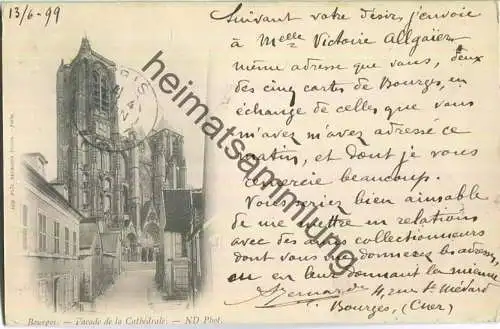 13/6-99
Suivant votre désir, j'envoie
à Melle Victoire Allgaier
même adresse que vous, deux
des cinq cartes de Bourges, en
échange de celles que vous
m'avez m'avez adressé ce
matin, et dont je vous
remercie beaucoup.
Vous seriez bien aimable
de me mettre en relations
avec des autres collectionneurs
dont vous me donnerez les adresses,
ou en leur donnant la mienne
Bernard 4, rue St Médard
Bourges, (Cher)
PARIS
Bourges. - Façade de la Cathédrale. - ND Phot.
heimatsammlung.de